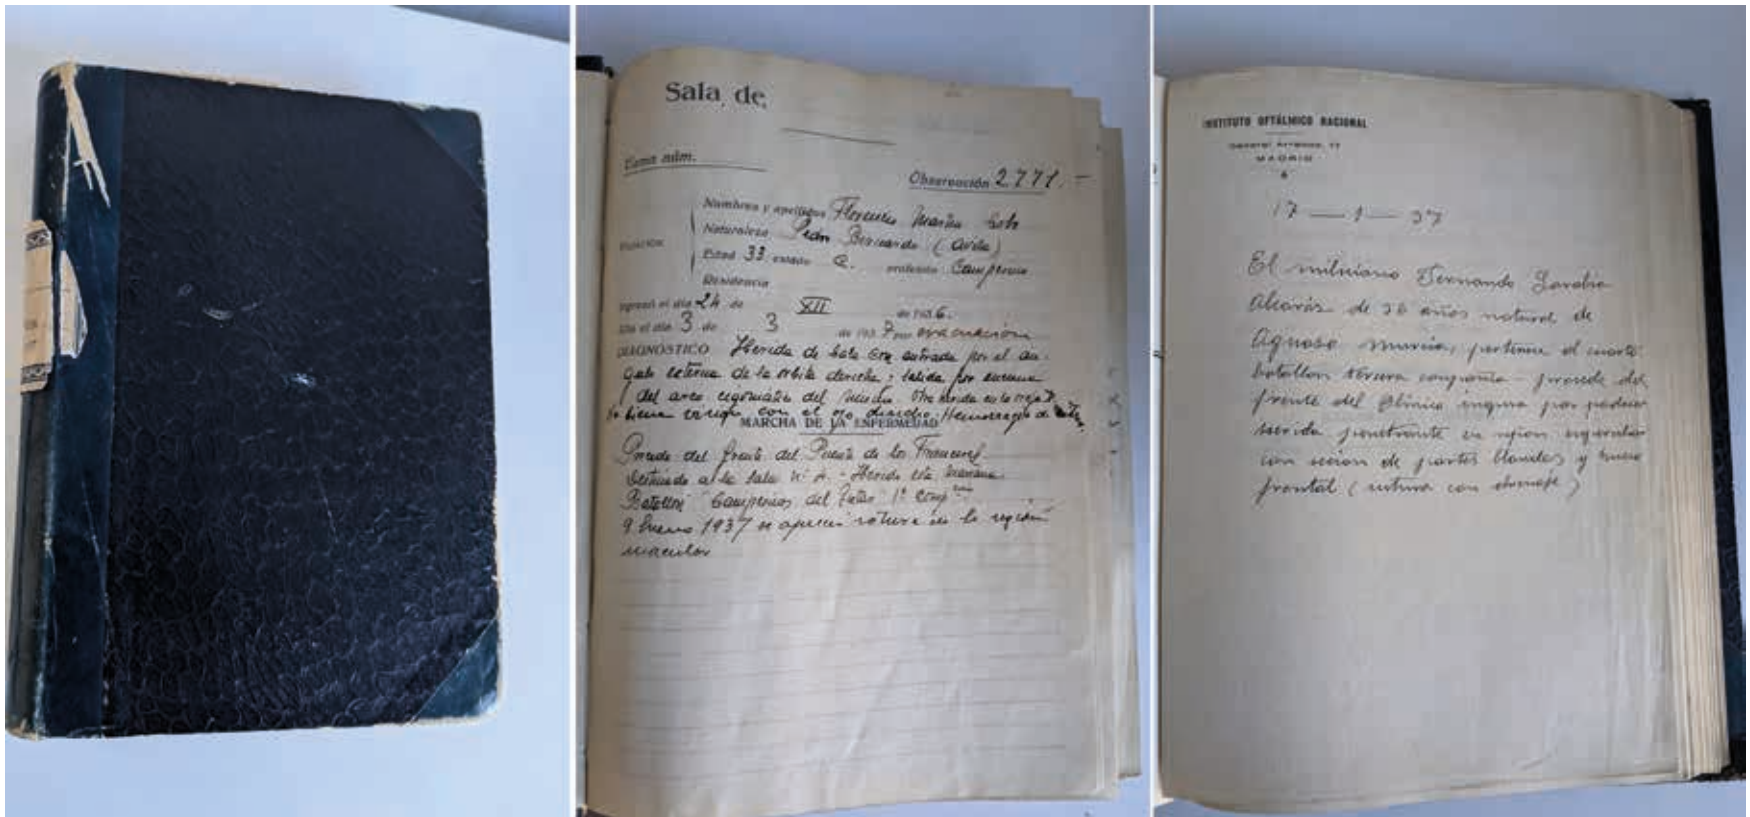 Sala de
Cama núm.
Observación 2.771.-
Nombres y apellidos Florencio Martín
Naturaleza Pedro Bernardo (Avila)
FILIACIÓN
Edad 33 estado C. profesión Campesino
Residencia
Ingresó el día 24 de XII de 1936.
día 3 de 3 de 1937 por evacuación
DIAGNÓSTICO Herida de bala con entrada por el án-
gulo externo de la orbita derecha y salida por encima
del arco zigomático del mismo. Otra herida en la oreja
No tiene visión con el ojo derecho. Hemorragia de
MARCHA DE LA ENFERMEDAD
Procede del frente del Puente de los Franceses.
Destinado a la Sala Herido esta mañana
Batallón Campesinos del 1ª Comp
9 Enero 1937 se aprecia rotura en la región
macular
INSTITUTO OFTÁLMICO NACIONAL
General Arrando, 17
MADRID
17 — 1 — 37
El miliciano Fernando
de 36 años natural de
murcia, pertenece al cuarto
batallon tercera compañia procede del
frente del Clínico ingresa por padecer
herida penetrante en region
con seccion de partes blandas y hueso
frontal (sutura con drenaje)